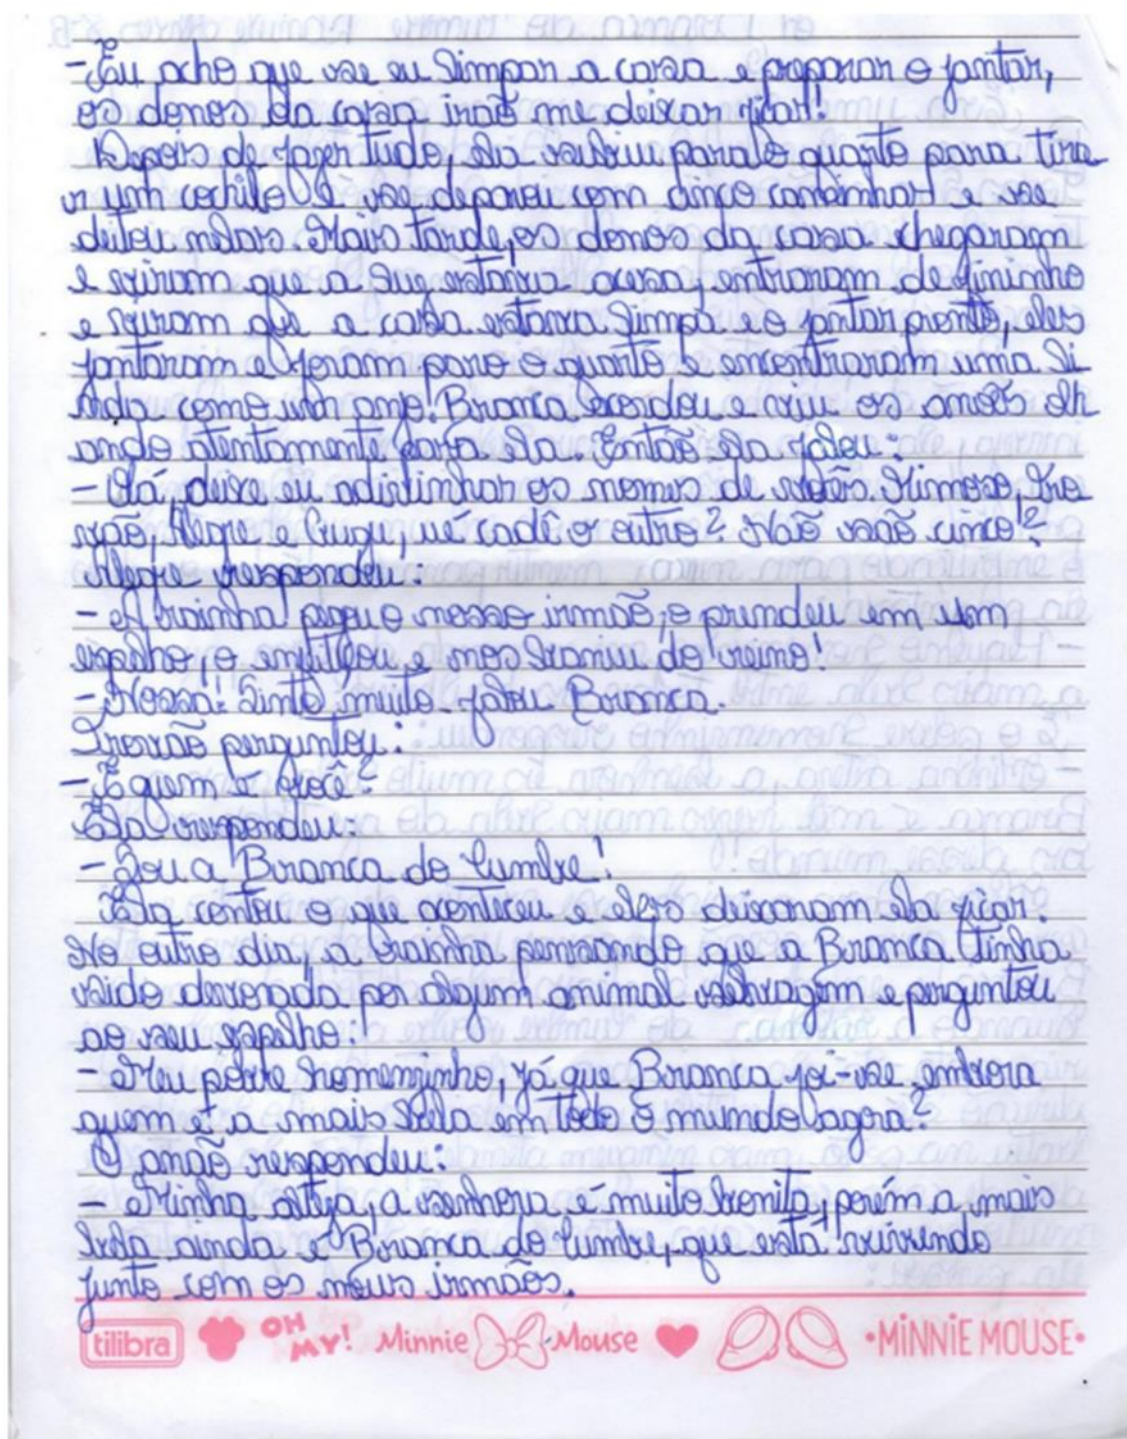 - Eu acho que se eu limpar a casa e preparar o jantar,
os donos da casa irão me deixar ficar!
Depois de fazer tudo, ela subiu para o quarto para tira
r um cochilo e se deparou com cinco caminhas e se
deitou nelas. Mais tarde, os donos da casa chegaram
e viram que a luz estava acesa, entraram de fininho
e viram que a casa estava limpa e o jantar pronto, eles
jantaram e foram para o quarto e encontraram uma li
nda como um anjo! Branca acordou e viu os anões olh
ando atentamente para ela. Então ela falou:
- Olá, deixe eu adivinhar os nomes de vocês. Mimoso, Tro
vão, Alegre e Gugu, ué cadê o outro? Não são cinco!?
Alegre respondeu:
- A rainha pegou nosso irmão, o prendeu em um
espelho, o enfeitiçou e nos baniu do reino!
- Nossa! Sinto muito - falou Branca.
Trovão perguntou:
- E quem é você?
Ela respondeu:
- Sou a Branca do Cumbre!
Ela contou o que aconteceu e eles deixaram ela ficar.
No outro dia, a rainha pensando que a Branca tinha
sido devorada por algum animal selvagem e perguntou
ao seu espelho:
- Meu pobre homenzinho, já que Branca foi-se embora
quem é a mais bela em todo o mundo agora?
O anão respondeu:
- Minha alteza, a senhora é muito bonita, porém a mais
bela ainda é Branca do Cumbre, que está vivendo
junto com os meus irmãos.
tilibra OH MY! Minnie Mouse •MiNNiE MOUSE•